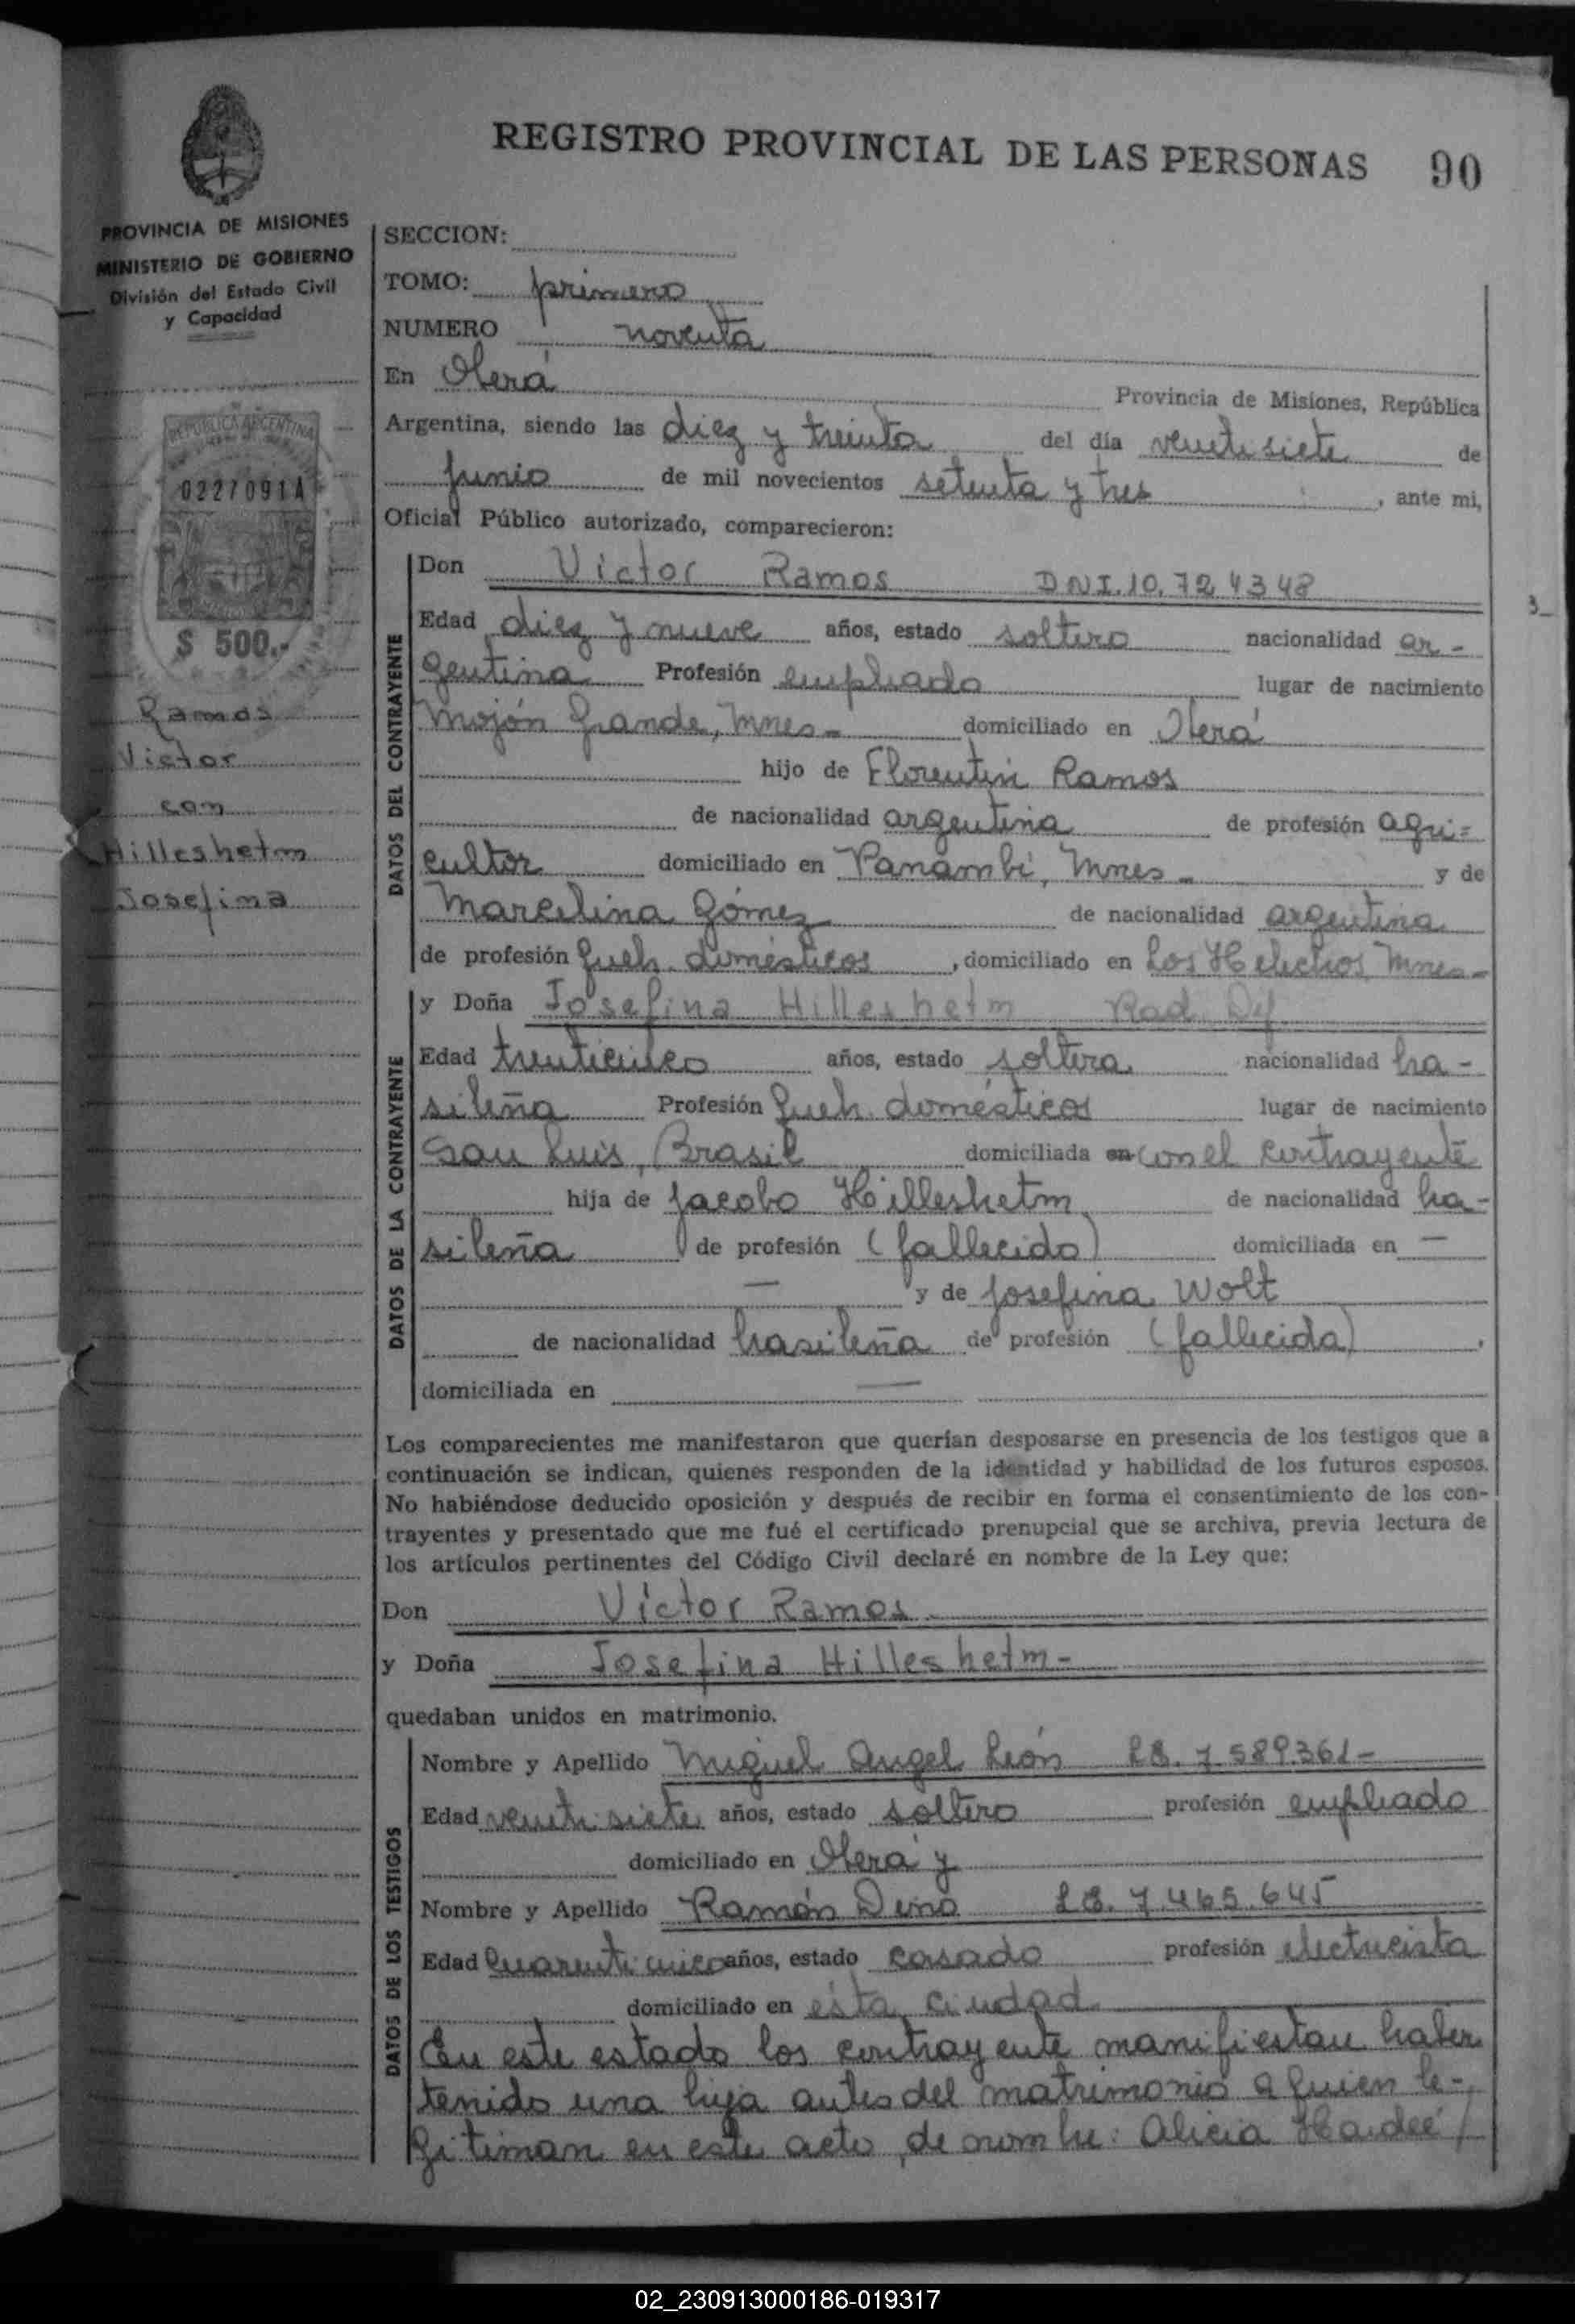 REGISTRO PROVINCIAL DE LAS PERSONAS 90
PROVINCIA DE MISIONES
MINISTERIO DE GOBIERNO
División del Estado Civil
y Capacidad
REPUBLICA ARGENTINA
0227091A
$ 500.-
Ramos
Victor
con
Hilleshetm
Josefina
SECCION:
TOMO: primero
NUMERO noventa
En Oberá
Provincia de Misiones, República
Argentina, siendo las diez y treinta del día veintisiete de
Junio de mil novecientos setenta y tres, ante mi,
Oficial Público autorizado, comparecieron:
DATOS DEL CONTRAYENTE
Don Victor Ramos DNI.10.724348
Edad diez y nueve años, estado soltero nacionalidad ar-
gentina Profesión empleado lugar de nacimiento
Mojón Grande, Mnes- domiciliado en Oberá
hijo de Florentin Ramos
de nacionalidad argentina de profesión agri=
cultor domiciliado en Panambí, Mnes- y de
Marcelina Gómez de nacionalidad argentina
de profesión queh. domésticos, domiciliado en Los Helechos, Mnes-
DATOS DE LA CONTRAYENTE
y Doña Josefina Hilleshetm Rad. Def.
Edad treinticinco años, estado soltera nacionalidad bra-
sileña Profesión queh. domésticos lugar de nacimiento
San Luis, Brasil domiciliada en con el contrayente
hija de Jacobo Hilleshetm de nacionalidad bra-
sileña de profesión (fallecido) domiciliada en —
— y de Josefina Wolt
de nacionalidad brasileña de profesión (fallecida),
domiciliada en —
Los comparecientes me manifestaron que querían desposarse en presencia de los testigos que a
continuación se indican, quienes responden de la identidad y habilidad de los futuros esposos.
No habiéndose deducido oposición y después de recibir en forma el consentimiento de los con-
trayentes y presentado que me fué el certificado prenupcial que se archiva, previa lectura de
los artículos pertinentes del Código Civil declaré en nombre de la Ley que:
Don Victor Ramos.
y Doña Josefina Hilleshetm-
quedaban unidos en matrimonio.
DATOS DE LOS TESTIGOS
Nombre y Apellido Miguel Angel León LE. 7.589.361-
Edad veintisiete años, estado soltero profesión empleado
domiciliado en Oberá y
Nombre y Apellido Ramón Deno LE. 7.465.645
Edad cuarenticinco años, estado casado profesión electricista
domiciliado en ésta ciudad
En este estado los contrayente manifiestan haber
tenido una hija antes del matrimonio a quien le-
gitiman en este acto, de nombre: Alicia Haideé /
02_230913000186-019317